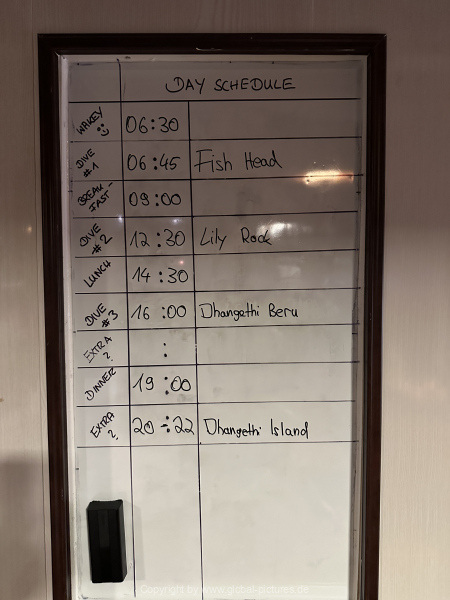 DAY SCHEDULE
WAKEY 06:30
DIVE #1 06:45 Fish Head
BREAK-FAST 09:00
DIVE #2 12:30 Lily Rock
LUNCH 14:30
DIVE #3 16:00 Dhangethi Beru
EXTRA? :
DINNER 19:00
EXTRA? 20-:22 Dhangethi Island
Copyright by www.global-pictures.de